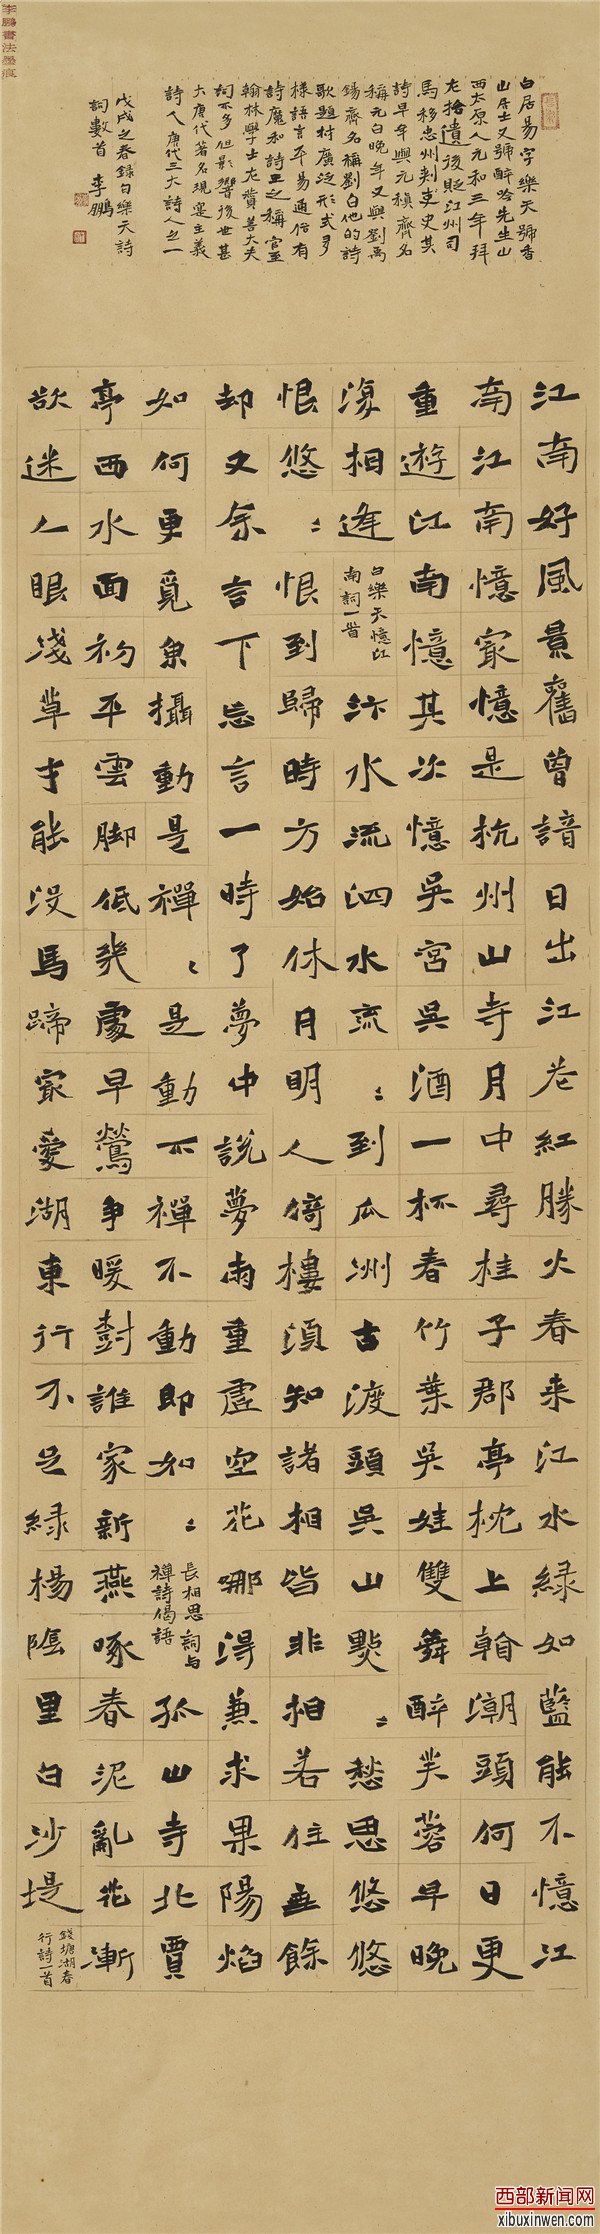 李鵬書法墨痕
白居易字樂天號香
山居士又號醉吟先生山
西太原人元和三年拜
左拾遺後貶江州司
馬移忠州刺吏史其
詩早年與元稹齊名
稱元白晚年又與劉禹
錫齊名稱劉白他的詩
歌題材廣泛形式多
樣語言平易通俗有
詩魔和詩王之稱官至
翰林學士左贊善大夫
詞不多但影響後世甚
大唐代著名現實主義
詩人唐代三大詩人之一
戊戌之春錄白樂天詩
詞數首 李鵬
江南好風景舊曾諳日出江花紅勝火春来江水綠如藍能不憶江
南江南憶最憶是杭州山寺月中尋桂子郡亭枕上看潮頭何日更
重遊江南憶其次憶吳宮吳酒一杯春竹葉吳娃雙舞醉芙蓉早晚
復相逢 白樂天憶江南詞一首 汴水流泗水流〻到瓜洲古渡頭吳山點〻愁思悠悠
恨悠〻恨到歸時方始休月明人倚樓須知諸相皆非相若住無餘
却又余言下忘言一時了夢中說夢兩重虛空花哪得兼求果陽焰
如何更覓魚攝動是禪〻是動不禪不動即如〻 長相思詞与禪詩偈語 孤山寺北賈
亭西水面初平雲脚低幾處早鶯爭暖樹誰家新燕啄春泥亂花漸
欲迷人眼淺草才能沒馬蹄最愛湖東行不足綠楊陰里白沙堤 錢塘湖春行詩一首
西部新闻网
xibuxinwen.com